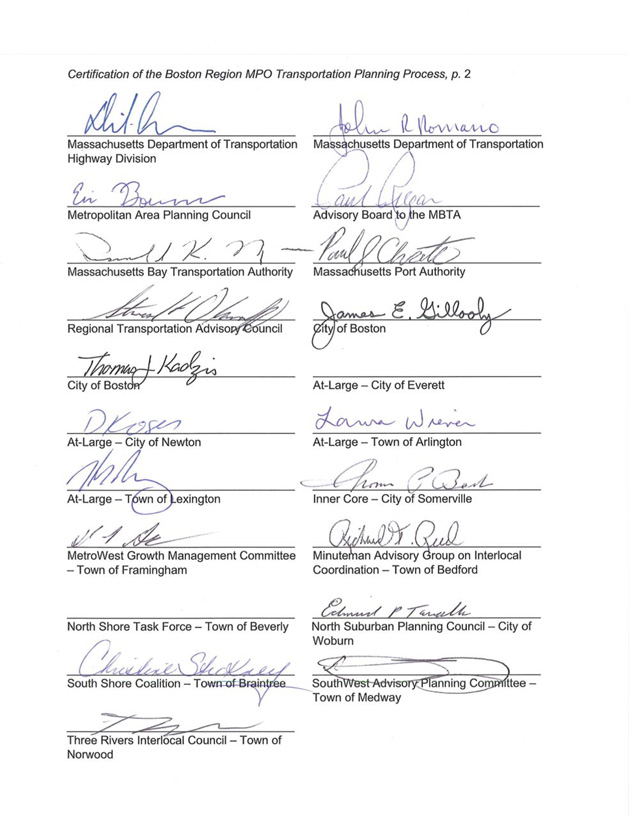 Certification of the Boston Region MPO Transportation Planning Process, p. 2
John R Romano
Massachusetts Department of Transportation
Highway Division
Massachusetts Department of Transportation
Paul Regan
Metropolitan Area Planning Council
Advisory Board to the MBTA
Massachusetts Bay Transportation Authority
Massachusetts Port Authority
James E. Gillooly
Regional Transportation Advisory Council
City of Boston
Thomas J Kadzis
City of Boston
At-Large – City of Everett
D Koses
Laura Wiener
At-Large – City of Newton
At-Large – Town of Arlington
At-Large – Town of Lexington
Inner Core – City of Somerville
Richard F. Reed
MetroWest Growth Management Committee
– Town of Framingham
Minuteman Advisory Group on Interlocal
Coordination – Town of Bedford
North Shore Task Force – Town of Beverly
North Suburban Planning Council – City of
Woburn
Christine Stickney
South Shore Coalition – Town of Braintree
SouthWest Advisory Planning Committee –
Town of Medway
Three Rivers Interlocal Council – Town of
Norwood